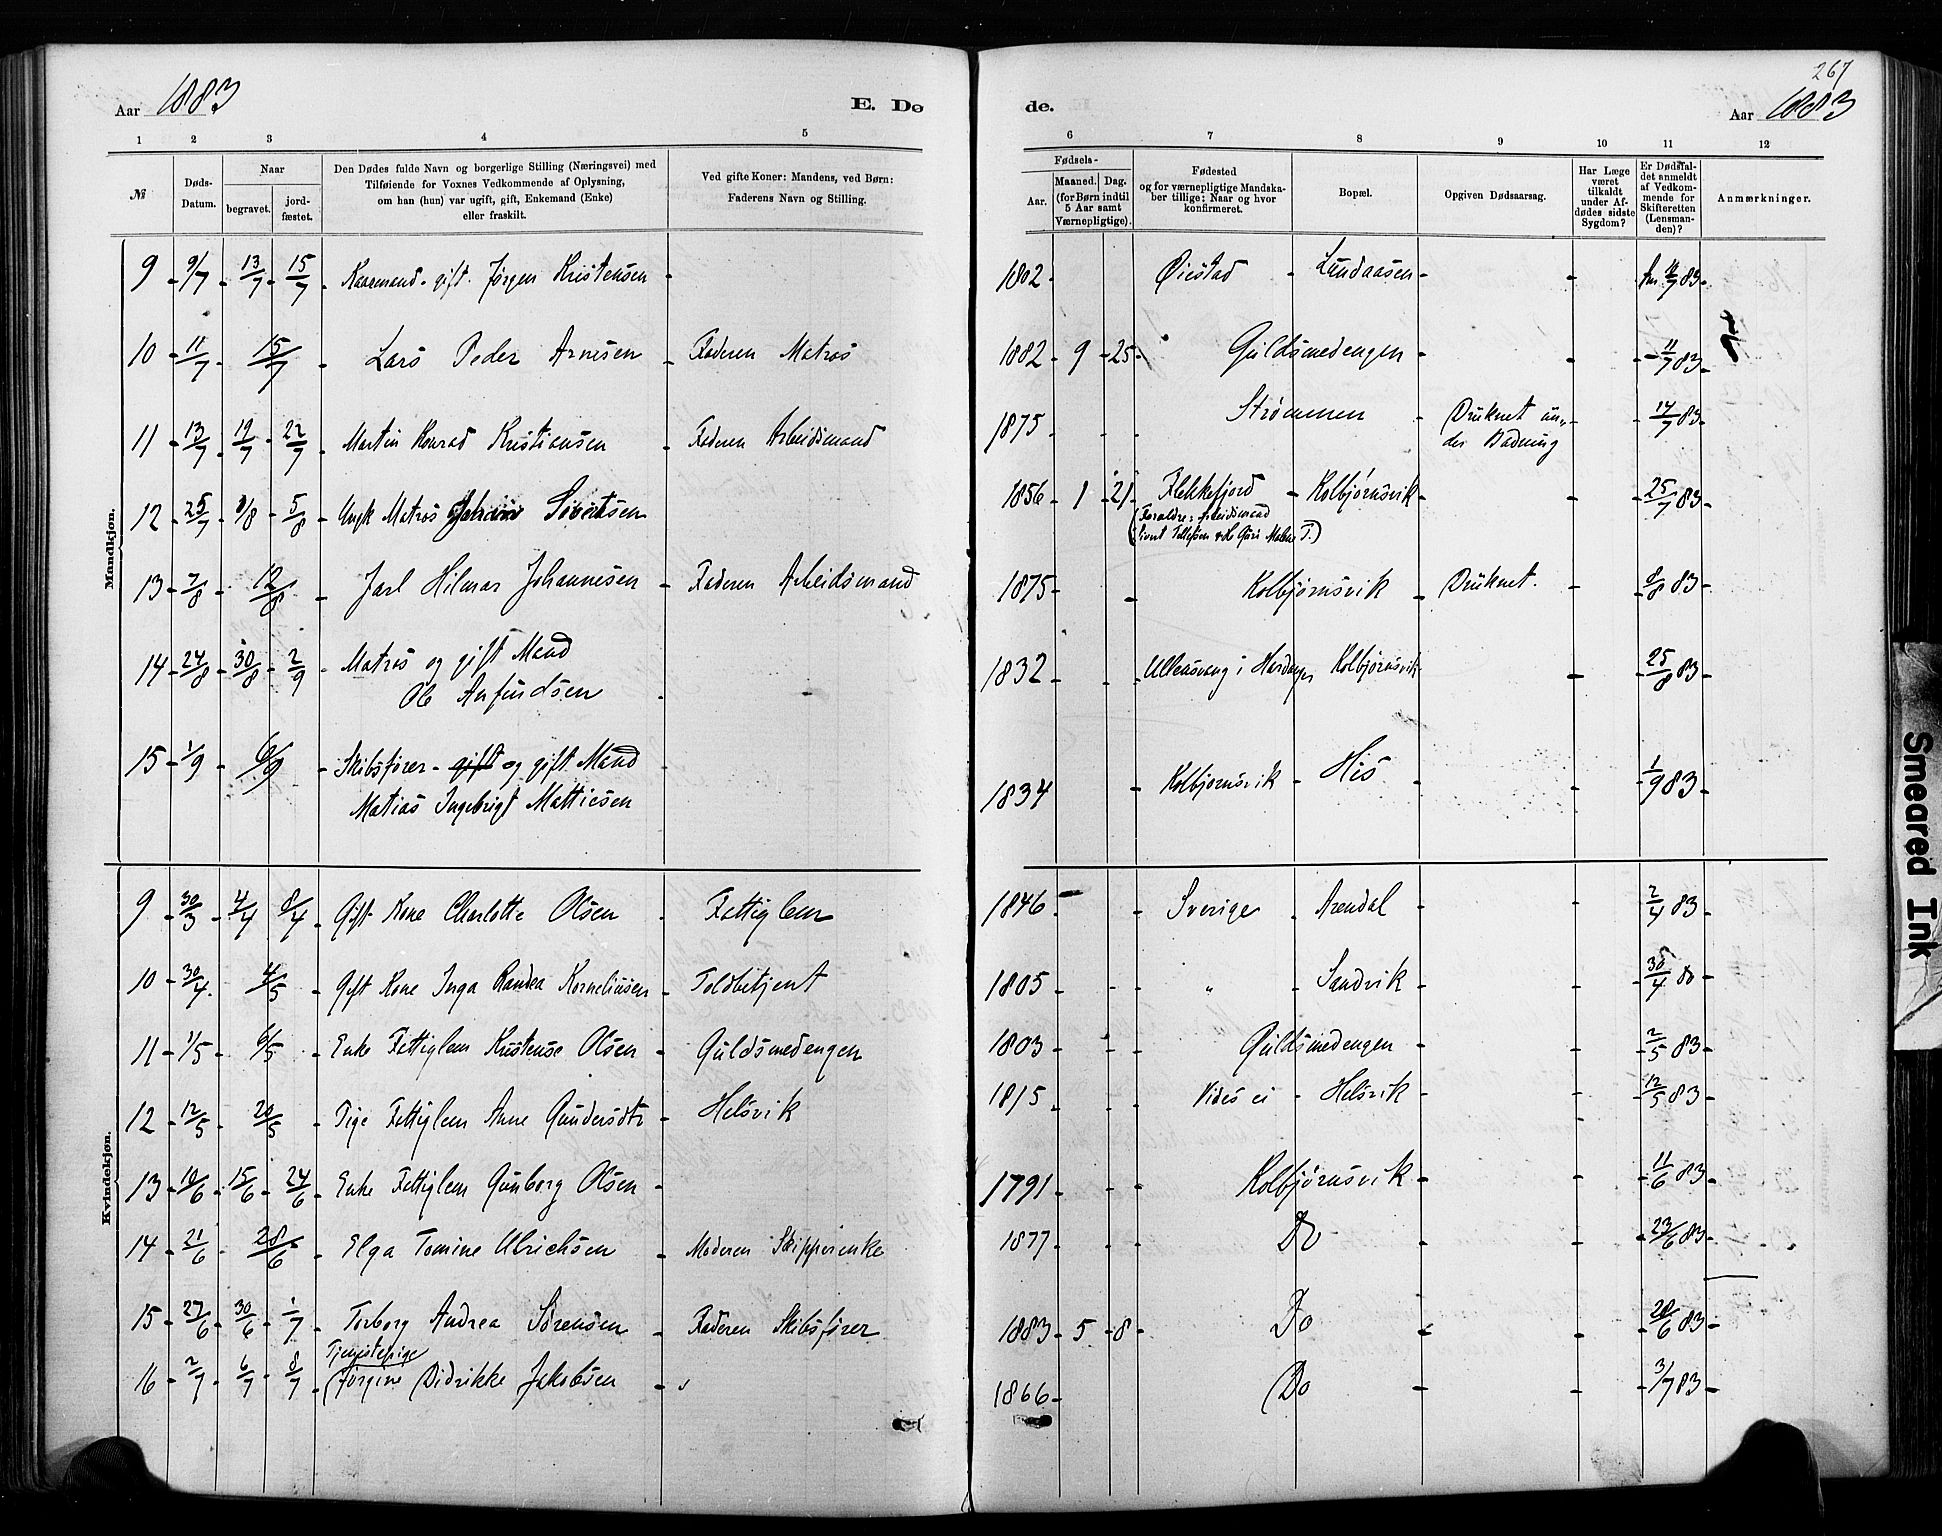 267
Aar 1883 E. Dø de. Aar 1883
1 2 3 4 5 6 7 8 9 10 11 12
№ Døds-Datum. Naar begravet. jordfæstet. Den Dødes fulde Navn og borgerlige Stilling (Næringsvei) med Tilføiende for Voxnes Vedkommende af Oplysning, om han (hun) var ugift, gift, Enkemand (Enke) eller fraskilt. Ved gifte Koner: Mandens, ved Børn: Faderens Navn og Stilling. Fødsels- Aar. Maaned. Dag. (for Børn indtil 5 Aar samt Værnepligtige). Fødested og for værnepligtige Mandskaber tillige: Naar og hvor konfirmeret. Bopæl. Opgiven Dødsaarsag. Har Læge været tilkaldt under Afdødes sidste Sygdom? Er Dødsfaldet anmeldt af Vedkommende for Skifteretten (Lensmanden)? Anmærkninger.
Mandkjøn.
9 9/7 13/7 15/7 Kaarmand gift Jørgen Kristensen 1802 Øiestad Lundaasen 83
10 11/7 15/7 Lars Peder Arnesen Faderen Matros 1882 9 25 Guldsmedengen 11/7 83
11 13/7 19/7 22/7 Martin Konrad Kristiansen Faderen Arbeidsmand 1875 Strømmen Druknet under Badning 14/7 83
12 25/7 1/8 5/8 Ungk Matros Sivertsen 1856 1 21 Flekkefjord Kolbjørnsvik 25/7 83
(Forældre: Arbeidsmand
13 7/8 12/8 Jarl Hilmar Johannesen Faderen Arbeidsmand 1875 Kolbjørnsvik Druknet. 8/8 83
14 24/8 30/8 2/9 Matros og gift Mand 1832 Ullensvang i Hardanger Kolbjørnsvik 25/8 83
Ole Anfindsen
15 1/9 6/9 Skibsfører gift og gift Mand 1834 Kolbjørnsvik His 1/9 83
Matias Ingebrigt Mathiesen
Kvindekjøn.
9 30/3 4/4 8/4 Gift Kone Charlotte Olsen Fattiglem 1846 Sverige Arendal 2/4 83
10 30/4 4/5 Gift Kone Inga Randea Korneliusen Toldbetjent 1805 " Sandvik 30/4 80
11 1/5 6/5 Enke Fattiglem Kristense Olsen Guldsmedengen 1803 Guldsmedengen 2/5 83
12 12/5 20/5 Pige Fattiglem Anne Gundersdtr Helsvik 1815 Vides ei Helsvik 12/5 83
13 10/6 15/6 24/6 Enke Fattiglem Gunborg Olsen 1791 Kolbjørnsvik 11/6 83
14 21/6 28/6 Elga Tomine Ulrichsen Moderen Skipperenke 1877 Do 23/6 83
15 27/6 30/6 1/7 Torborg Andrea Sørensen Faderen Skibsfører 1883 5 8 Do 28/6 83
Tjenestepige
16 2/7 6/7 8/7 Jørgine Didrikke Jakobsen 1866 Do 3/7 83
Smeared Ink